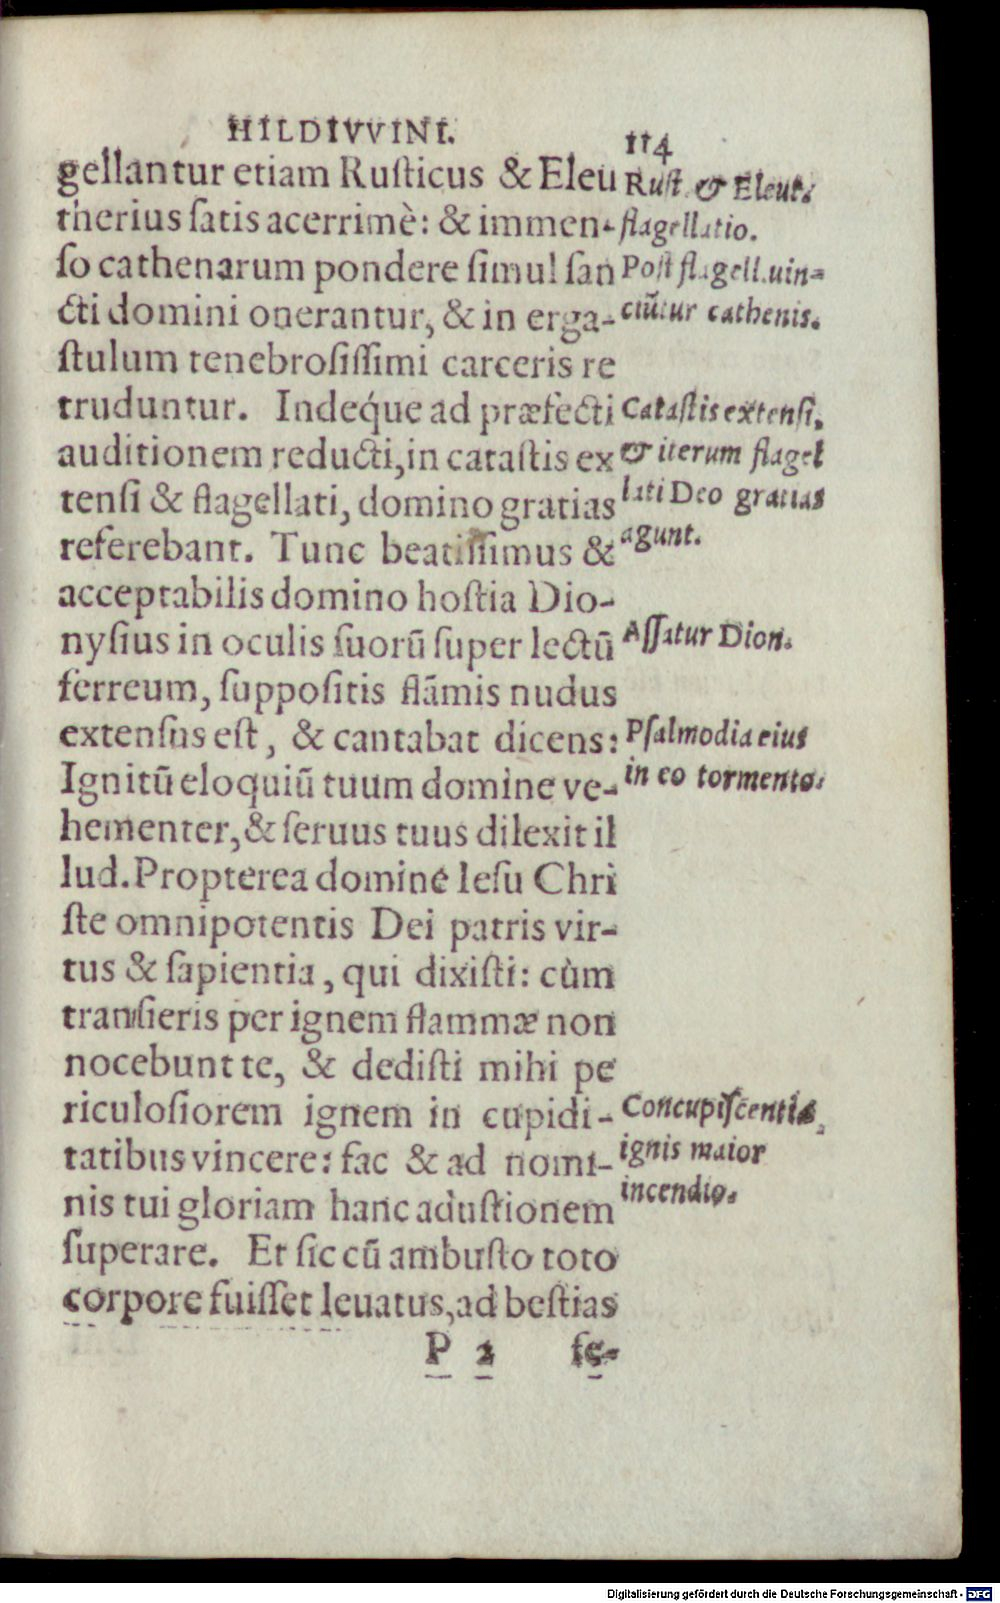 HILDIVVINI.
114
gellantur etiam Ruſticus & Eleu
therius ſatis acerrimè: & immen-
ſo cathenarum pondere ſimul ſan
cti domini onerantur, & in erga-
ſtulum tenebroſiſſimi carceris re
truduntur. Indeq́ue ad præfecti
auditionem reducti, in cataſtis ex
tenſi & flagellati, domino gratias
referebant. Tunc beatiſſimus &
acceptabilis domino hoſtia Dio-
nyſius in oculis ſuorũ ſuper lectũ
ferreum, ſuppoſitis flãmis nudus
extenſus eſt, & cantabat dicens:
Ignitũ eloquiũ tuum domine ve-
hementer, & ſeruus tuus dilexit il
lud. Propterea domine Ieſu Chri
ſte omnipotentis Dei patris vir-
tus & ſapientia, qui dixiſti: cùm
tranſieris per ignem flammæ non
nocebunt te, & dediſti mihi pe
riculoſiorem ignem in cupidi-
tatibus vincere: fac & ad nomi-
nis tui gloriam hanc aduſtionem
ſuperare. Et ſic cũ ambuſto toto
corpore fuiſſet leuatus, ad beſtias
P 2 fe-
Ruſt. & Eleut.
flagellatio.
Poſt flagell. uin-
ctũtur cathenis.
Cataſtis extenſi,
& iterum flagel
lati Deo gratias
agunt.
Aſſatur Dion.
Pſalmodia eius
in eo tormento.
Concupiſcentiæ
ignis maior
incendio.
Digitalisierung gefördert durch die Deutsche Forschungsgemeinschaft - DFG